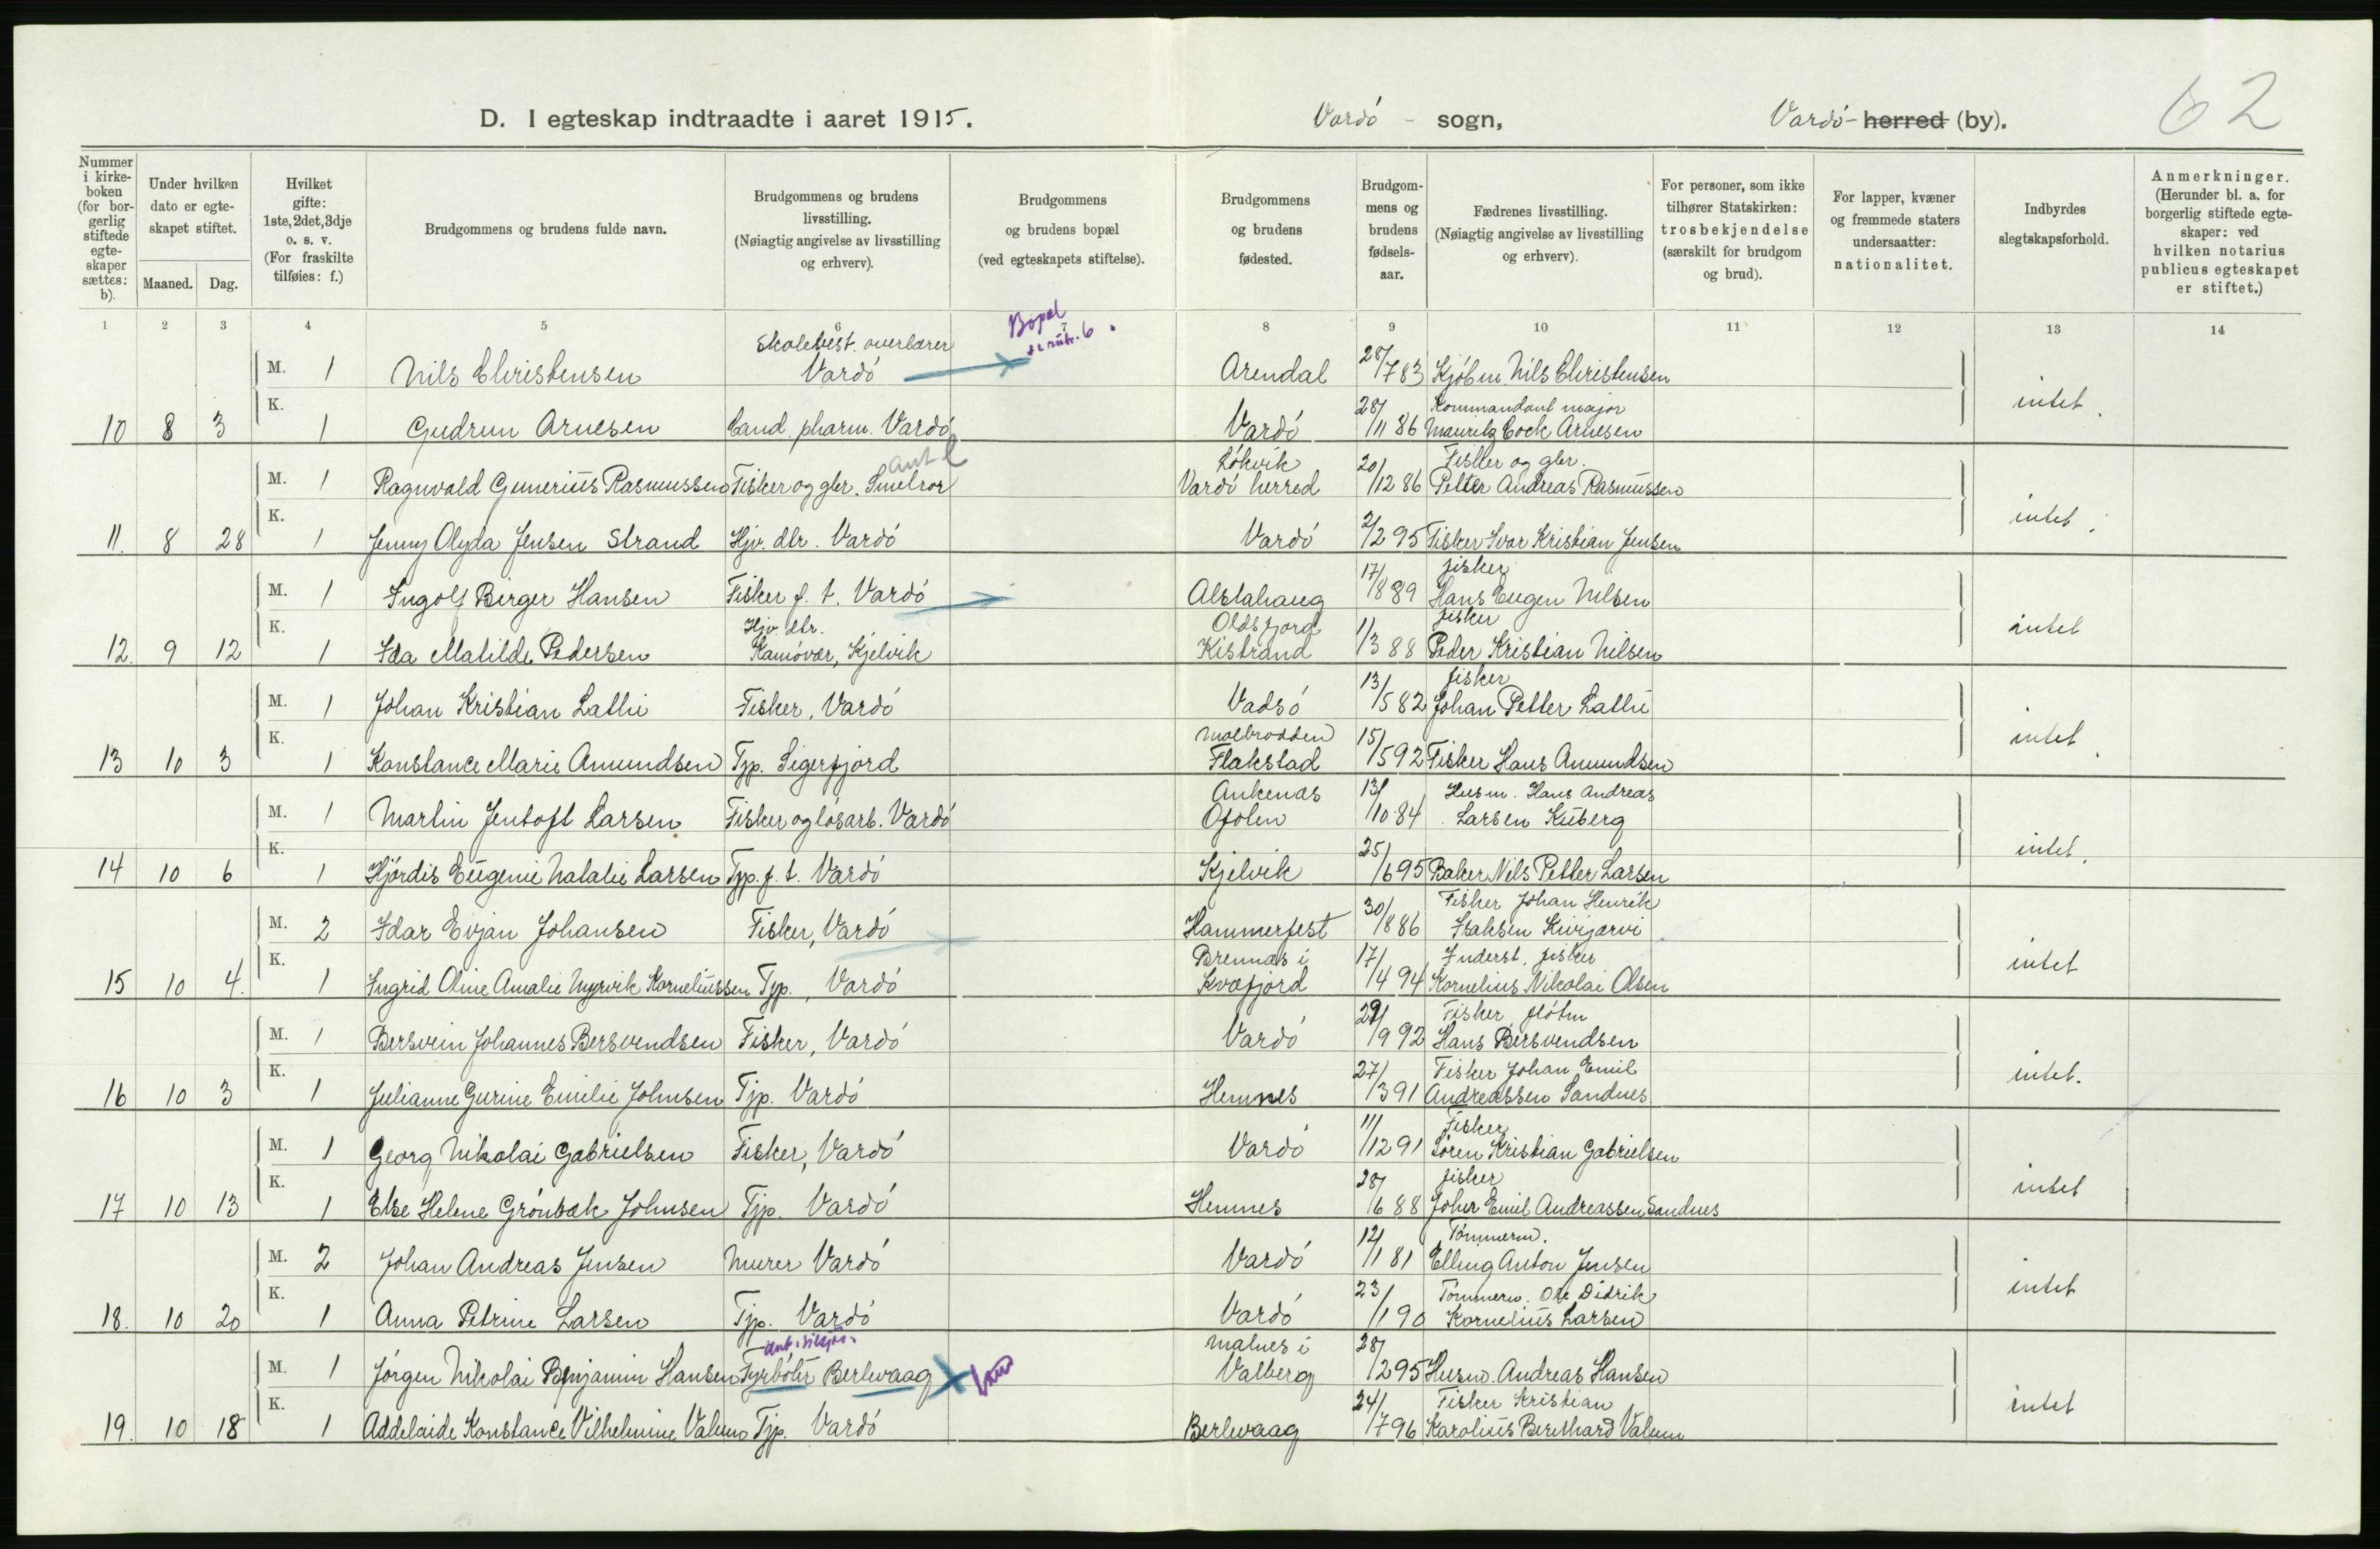 62
D. I egteskap indtraadte i aaret 1915.
Vardö - sogn,
Vardö - herred (by).
Nummer i kirke-boken (for bor-gerlig stiftede egte-skaper sættes: b).
Under hvilken dato er egte-skapet stiftet.
Maaned. Dag.
Hvilket gifte: 1ste, 2det, 3dje o. s. v. (For fraskilte tilføies: f.)
Brudgommens og brudens fulde navn.
Brudgommens og brudens livsstilling. (Nøiagtig angivelse av livsstilling og erhverv).
Brudgommens og brudens bopæl (ved egteskapets stiftelse).
Brudgommens og brudens fødested.
Brudgom-mens og brudens fødsels-aar.
Fædrenes livsstilling. (Nøiagtig angivelse av livsstilling og erhverv).
For personer, som ikke tilhører Statskirken: trosbekjendelse (særskilt for brudgom og brud).
For lapper, kvæner og fremmede staters undersaatter: nationalitet.
Indbyrdes slegtskapsforhold.
Anmerkninger. (Herunder bl. a. for borgerlig stiftede egte-skaper: ved hvilken notarius publicus egteskapet er stiftet.)
1 2 3 4 5 6 7 8 9 10 11 12 13 14
Bopæl
se rubr. 6.
Skolebest. overlærer
M. 1 Nils Christensen Vardö Arendal 28/7 83 Kjöbm. Nils Christensen
Kommandant major
10 8 3 K. 1 Gudrun Arnesen Cand. pharm. Vardö Vardö 28/11 86 Mauritz Cock Arnesen intet.
ant l
Lökvik Fisker og gbr.
M. 1 Ragnvald Gunerius Rasmussen Fisker og gbr. Smelror Vardö herred 20/12 86 Petter Andreas Rasmussen
11. 8 28 K. 1 Jenny Alyda Jensen Strand Hjv. dtr. Vardö Vardö 2/2 95 Fisker Ivar Kristian Jensen intet.
fisker
M. 1 Ingolf Birger Hansen Fisker f. t. Vardö Alstahaug 17/8 89 Hans Eugen Nilsen
Hjv. dtr. Oldsfjord fisker
12. 9 12 K. 1 Ida Matilde Pedersen Kamövær, Kjelvik Kistrand 1/3 88 Peder Kristian Nilsen intet
fisker
M. 1 Johan Kristian Lathi Fisker, Vardö Vadsö 13/5 82 Johan Petter Lathi
13 10 3 K. 1 Konstance Marie Amundsen Tjp. Sigerfjord Flakstad 15/5 92 Fisker Hans Amundsen intet.
Ankenæs Husm. Hans Andreas
M. 1 Martin Jentoft Larsen Fisker og lösarb. Vardö Ofoten 13/10 84 Larsen Kuberg
14 10 6 K. 1 Hjördis Eugenie Natalie Larsen Tjp. f. t. Vardö Kjelvik 25/6 95 Baker Nils Petter Larsen intet.
Fisker Johan Henrik
M. 2 Idar Evjan Johansen Fisker, Vardö Hammerfest 30/8 86 Isaksen Kivijærvi
Brennæs i Inderst. fisker
15 10 4. K. 1 Ingrid Oline Amalie Myrvik Korneliussen Tjp., Vardö Kvæfjord 17/4 94 Kornelius Nikolai Olsen intet
Fisker flötm
M. 1 Bersvein Johannes Bersvendsen Fisker, Vardö Vardö 29/9 92 Hans Bersvendsen
Fisker Johan Emil
16 10 3 K. 1 Julianne Gurine Emilie Johnsen Tjp. Vardö Hemnes 27/3 91 Andreassen Sandnes intet.
Fisker
M. 1 Georg Nikolai Gabrielsen Fisker, Vardö Vardö 11/12 91 Sören Kristian Gabrielsen
fisker
17 10 13 K. 1 Else Helene Grönbæk Johnsen Tjp. Vardö Hemnes 28/6 88 Johan Emil Andreassen Sandnes intet
Tömmerm.
M. 2 Johan Andreas Jensen Murer Vardö Vardö 12/1 81 Elling Anton Jensen
Tömmerm. Ole Didrik
18. 10 20 K. 1 Anna Petrine Larsen Tjp. Vardö Vardö 23/1 90 Kornelius Larsen intet
Malnes i
M. 1 Jörgen Nikolai Benjamin Hansen Fyrböter Berlevaag Valberg 28/2 95 Husm. Andreas Hansen
Fisker Kristian
19. 10 18 K. 1 Addelaide Konstance Vilhelmine Valum Tjp. Vardö Berlevaag 24/7 96 Karolius Bernthard Valum intet